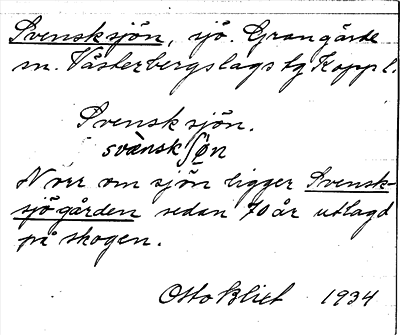 Svensksjön, sjö. Grangärde
sn. Västerbergslags tg Koppl.
Svensksjön.
svànskʃö̀n
Norr om sjön ligger Svensk-
sjögården sedan 70 år utlagd
på skogen.
Otto Blixt 1934